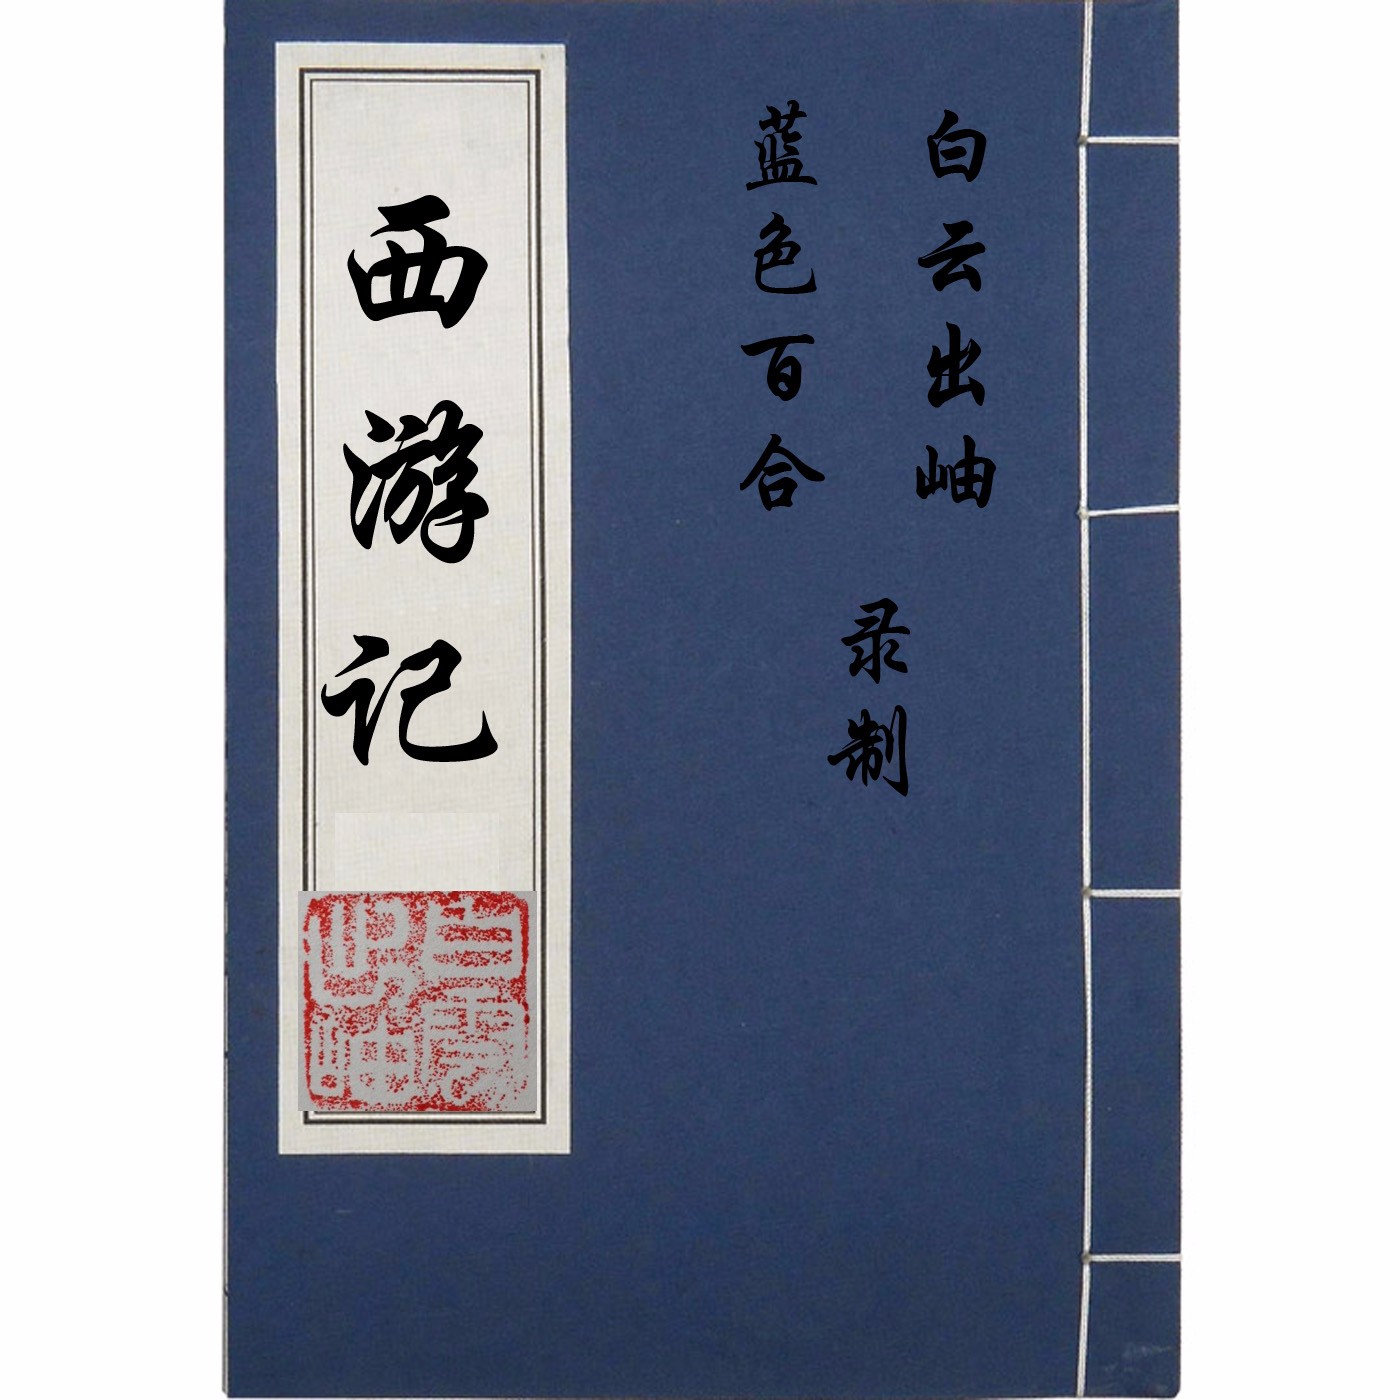 白云出岫
蓝色百合
录制
西游记
白雲
出岫